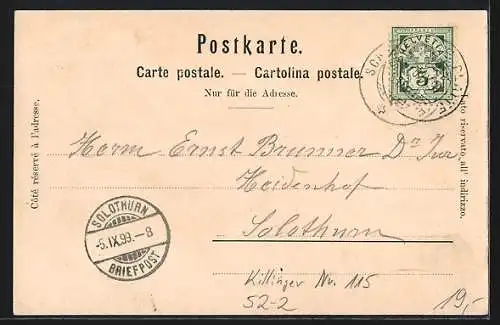 Postkarte.
Carte postale. — Cartolina postale.
Nur für die Adresse.
HELVETIA
5
Côté réservé à l'adresse.
Lato riservato all' indirizzo.
Herrn Ernst Brunner Dr Jur.
Heidenhof
Solothurn
SOLOTHURN
-5.IX.99.-8
BRIEFPOST
Killinger Nr. 115
S2-2
19,-